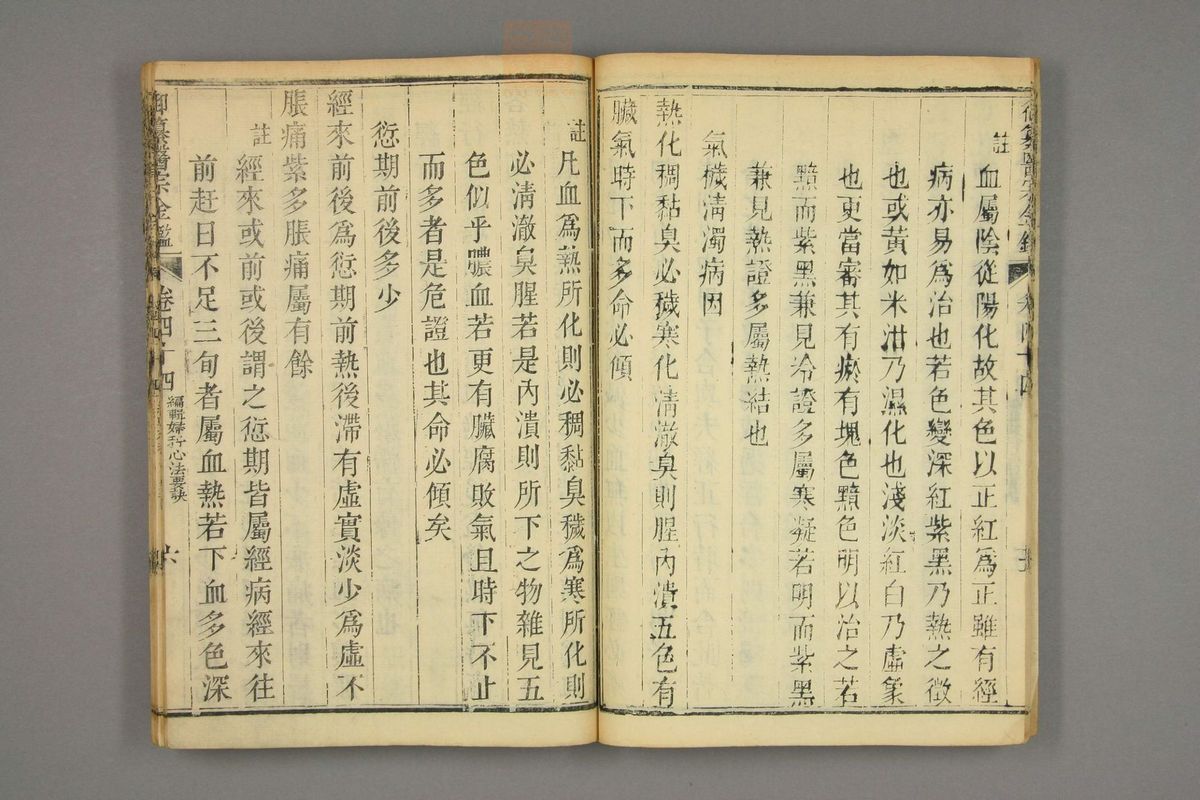 御纂醫宗金鑑 卷四十四
註
血屬陰從陽化故其色以正紅爲正雖有經
病亦易爲治也若色變深紅紫黑乃熱之徵
也或黃如米泔乃濕化也淺淡紅白乃虛象
也更當審其有瘀有塊色黯色明以治之若
黯而紫黑兼見冷證多屬寒凝若明而紫黑
兼見熱證多屬熱結也
氣穢淸濁病因
熱化稠黏臭必穢寒化淸澈臭則腥內潰五色有
臟氣時下而多命必傾
註
凡血爲熱所化則必稠黏臭穢爲寒所化則
必淸澈臭腥若是內潰則所下之物雜見五
色似乎膿血若更有臟腐敗氣且時下不止
而多者是危證也其命必傾矣
愆期前後多少
經來前後爲愆期前熱後滯有虛實淡少爲虛不
脹痛紫多脹痛屬有餘
註
經來或前或後謂之愆期皆屬經病經來往
前赶日不足三旬者屬血熱若下血多色深
御纂醫宗金鑑 卷四十四 編輯婦科心法要訣 六